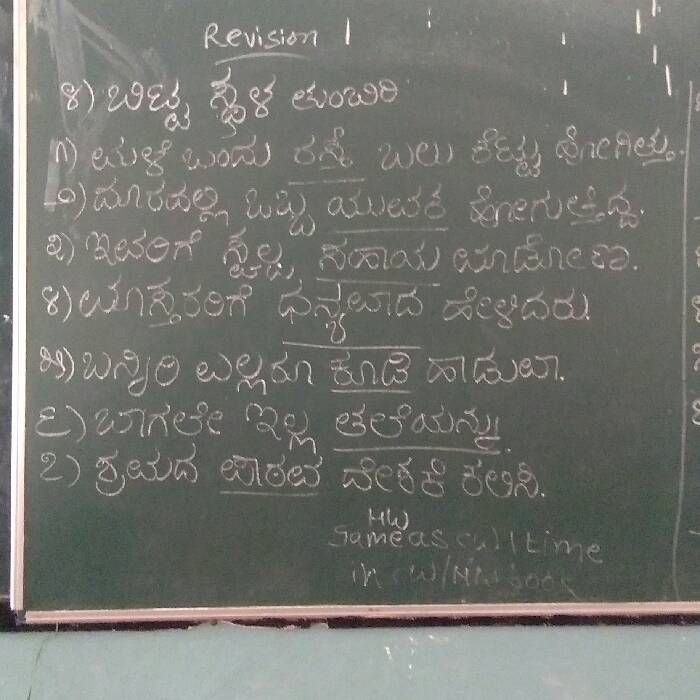 Revision 1
೪) ಬಿಟ್ಟ ಸ್ಥಳ ತುಂಬಿರಿ
೧) ಮಳೆ ಬಂದು ರಸ್ತೆ ಬಲು ಕೆಟ್ಟು ಹೋಗಿತ್ತು.
೨) ದೂರದಲ್ಲಿ ಒಬ್ಬ ಯುವಕ ಹೋಗುತ್ತಿದ್ದ.
೩) ಇವರಿಗೆ ಸ್ವಲ್ಪ ಸಹಾಯ ಮಾಡೋಣ.
೪) ಮಾಸ್ತರರಿಗೆ ಧನ್ಯವಾದ ಹೇಳಿದರು.
೫) ಬನ್ನಿರಿ ಎಲ್ಲರೂ ಕೂಡಿ ಹಾಡುವಾ.
೬) ಬಾಗಲೇ ಇಲ್ಲ ತಲೆಯನ್ನು.
೭) ಶ್ರಮದ ಪಾಠವ ದೇಶಕೆ ಕಲಿಸಿ.
HW
Same as time
in CW/HW book